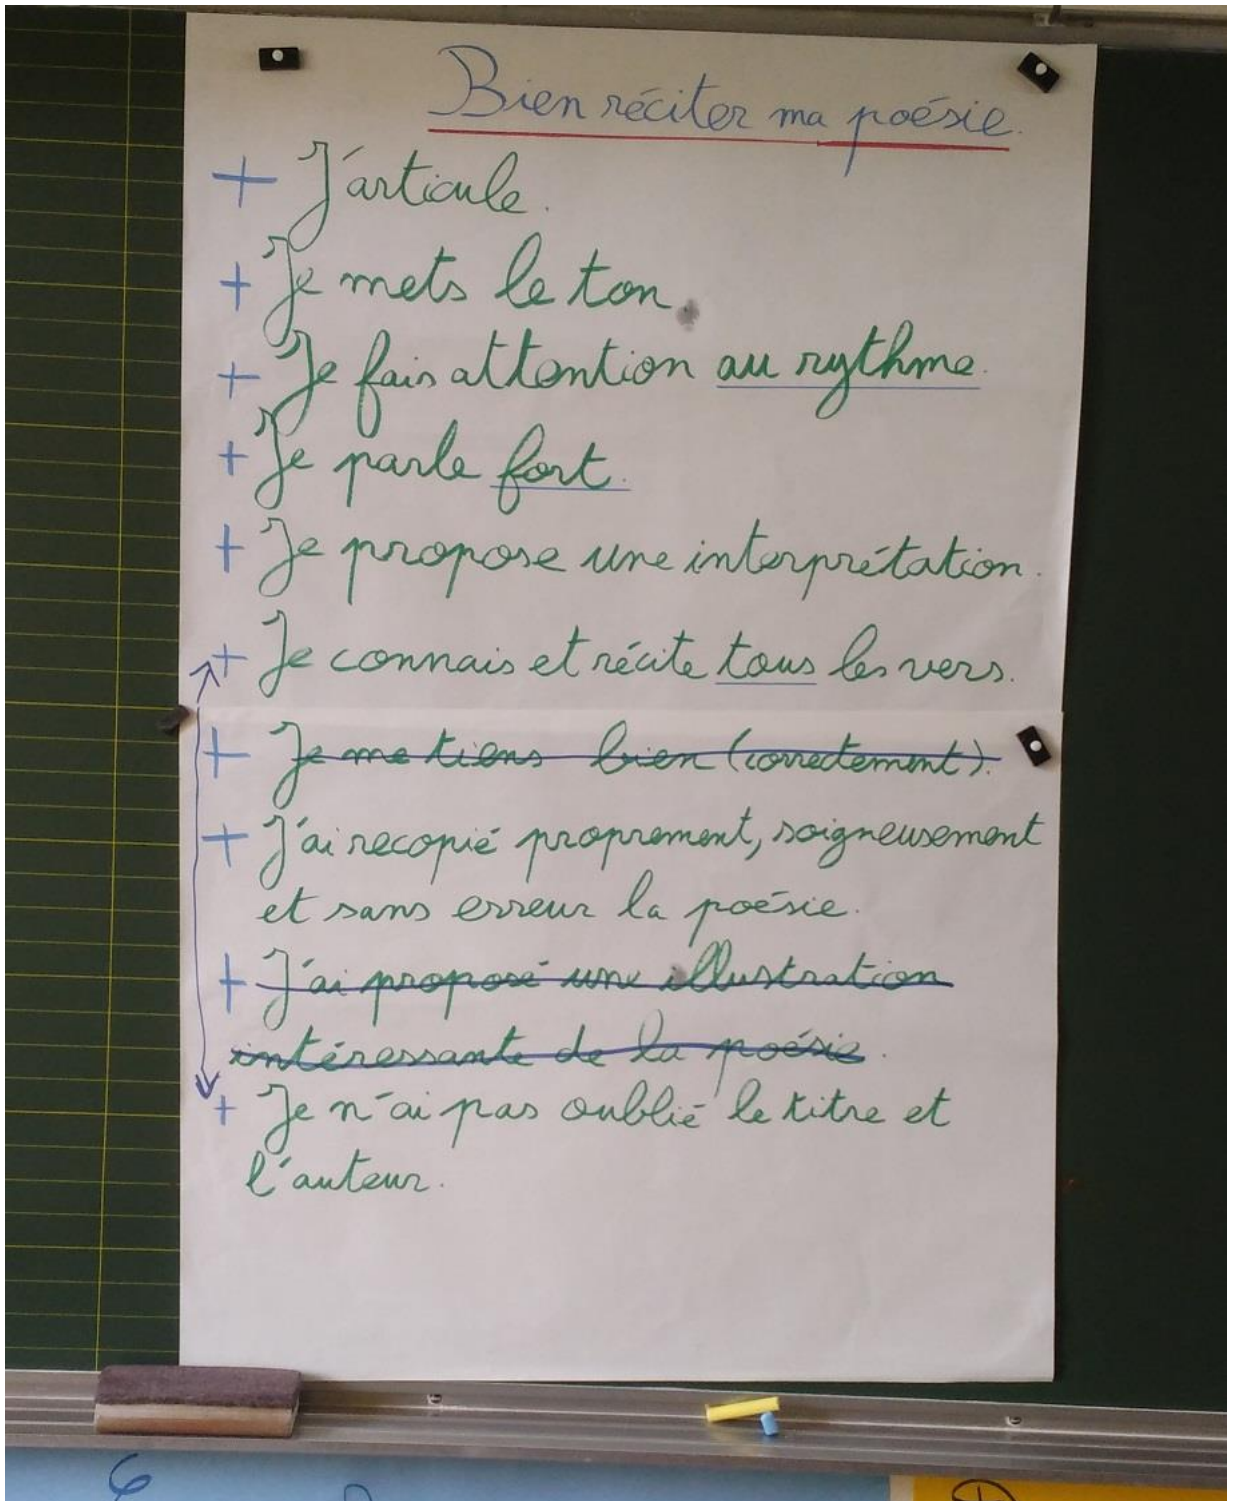 Bien réciter ma poésie.
+ J'articule.
+ Je mets le ton.
+ Je fais attention au rythme.
+ Je parle fort.
+ Je propose une interprétation.
+ Je connais et récite tous les vers.
+ Je me tiens bien (correctement).
+ J'ai recopié proprement, soigneusement
et sans erreur la poésie.
+ J'ai proposé une illustration
intéressante de la poésie.
+ Je n'ai pas oublié le titre et
l'auteur.